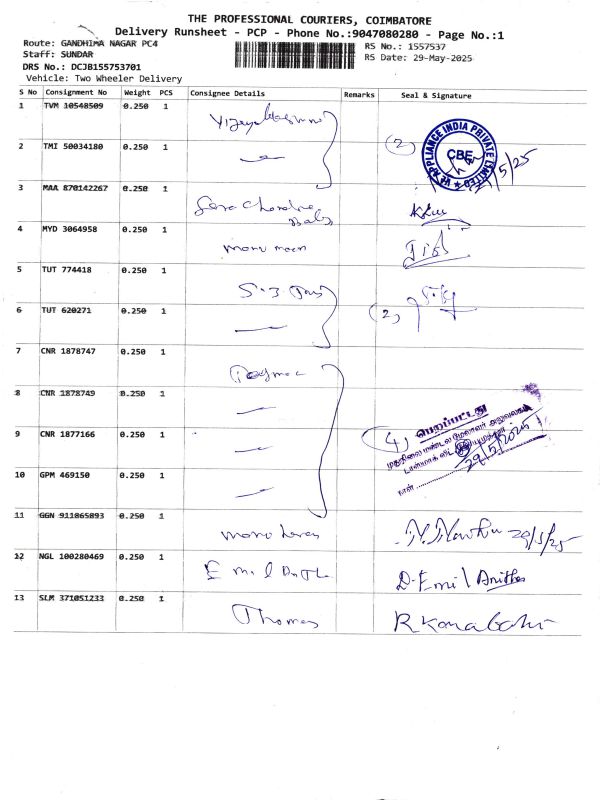 THE PROFESSIONAL COURIERS, COIMBATORE
Delivery Runsheet - PCP - Phone No.:9047080280 - Page No.:1
Route: GANDHIMA NAGAR PC4
Staff: SUNDAR
DRS No.: DCJB155753701
Vehicle: Two Wheeler Delivery
RS No.: 1557537
RS Date: 29-May-2025
S No Consignment No Weight PCS Consignee Details Remarks Seal & Signature
1 TVM 10548509 0.250 1
2 TMI 50034180 0.250 1 (2) VE APPLIANCE INDIA PRIVATE LIMITED CBE
3 MAA 870142267 0.250 1
4 MYD 3064958 0.250 1
5 TUT 774418 0.250 1
6 TUT 620271 0.250 1 (2)
7 CNR 1878747 0.250 1
8 CNR 1878749 0.250 1
9 CNR 1877166 0.250 1 (4) பெறப்பட்டது 29/5/2025
10 GPM 469150 0.250 1 நாள்
11 GGN 911865893 0.250 1 29/5/25
12 NGL 100280469 0.250 1 D. Emil Anitha
13 SLM 371051233 0.250 1 Thomas